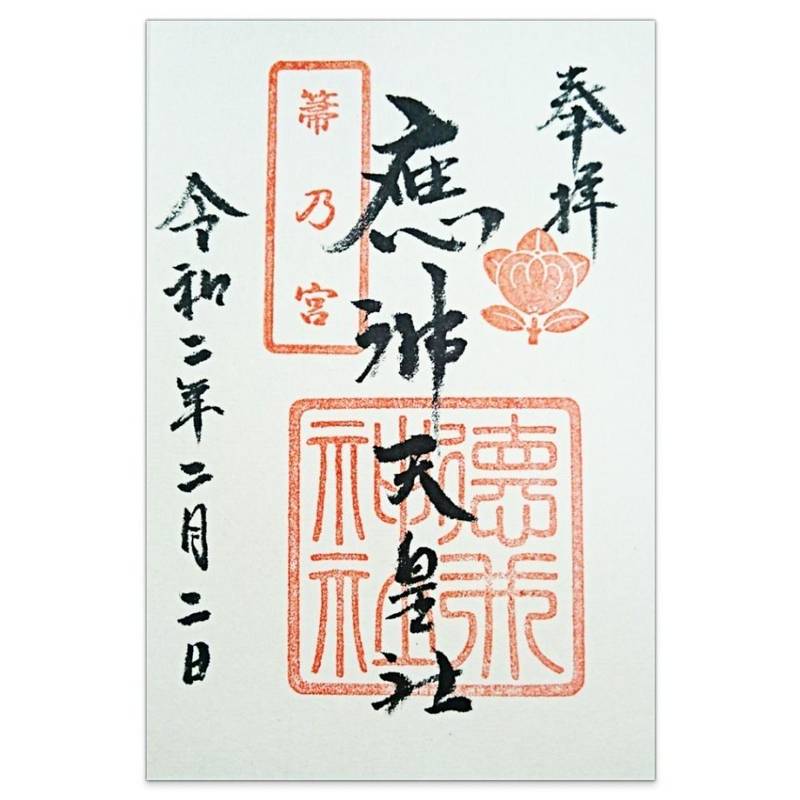 奉拝
應神天皇社
箒乃宮
徳永神社
令和二年二月二日